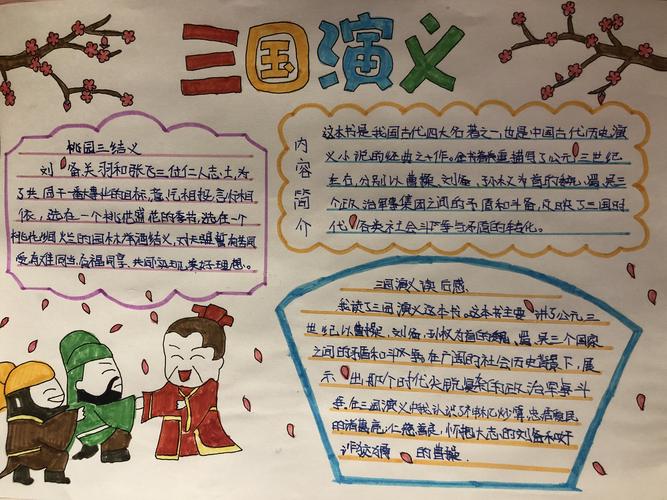 三国演义
桃园三结义
刘备关羽和张飞三位仁人志士,为
了共同干一番事业的目标,意气相投,言行相
依,选在一个桃花盛开的季节,选在一个
桃花烂的园林,举酒结义,对天盟誓有苦同
受有难同当,有福同享,共同实现美好理想。
内容简介
这本书是我国古代四大名著之一,也是中国古代历史演
义小说的经典之作。全书描写了公元三世纪
左右,分别以曹操、刘备、孙权为首的魏、蜀、吴三
个政治军事集团之间的矛盾和斗争,反映了三国时
代各类社会斗争与矛盾的转化。
三国演义读后感
我读了三国演义这本书。这本书主要讲了公元三
世纪以曹操、刘备、孙权为首的魏、蜀、吴三个国家
之间的矛盾和斗争,在广阔的社会历史背景下,展
示出那个时代尖锐复杂的政治军事斗
争,在三国演义中我认识了神机妙算,忠君爱民
的诸葛亮,仁慈,怀抱大志的刘备和奸
诈的曹操。